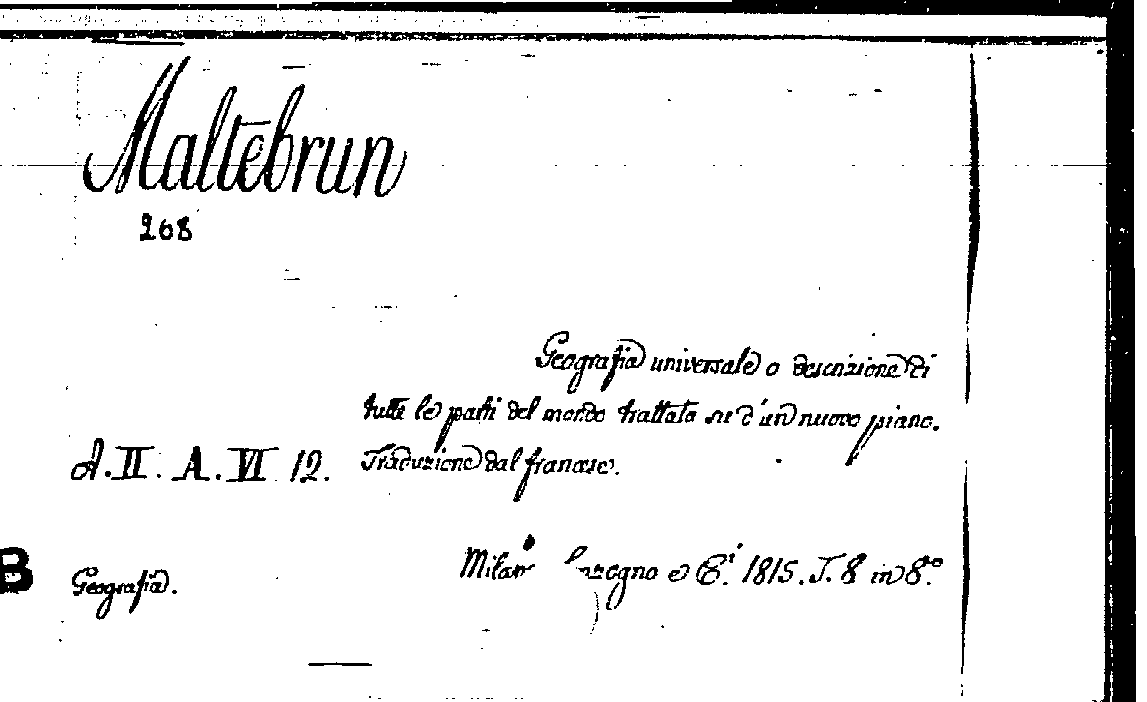 Maltebrun
268
Geografia universale o descrizione di
tutte le parti del mondo trattata su d'un nuovo piano.
A. II. A. VI 12. Traduzione dal francese.
Milano e C.i 1815. T. 8 in 8.o
B Geografia.